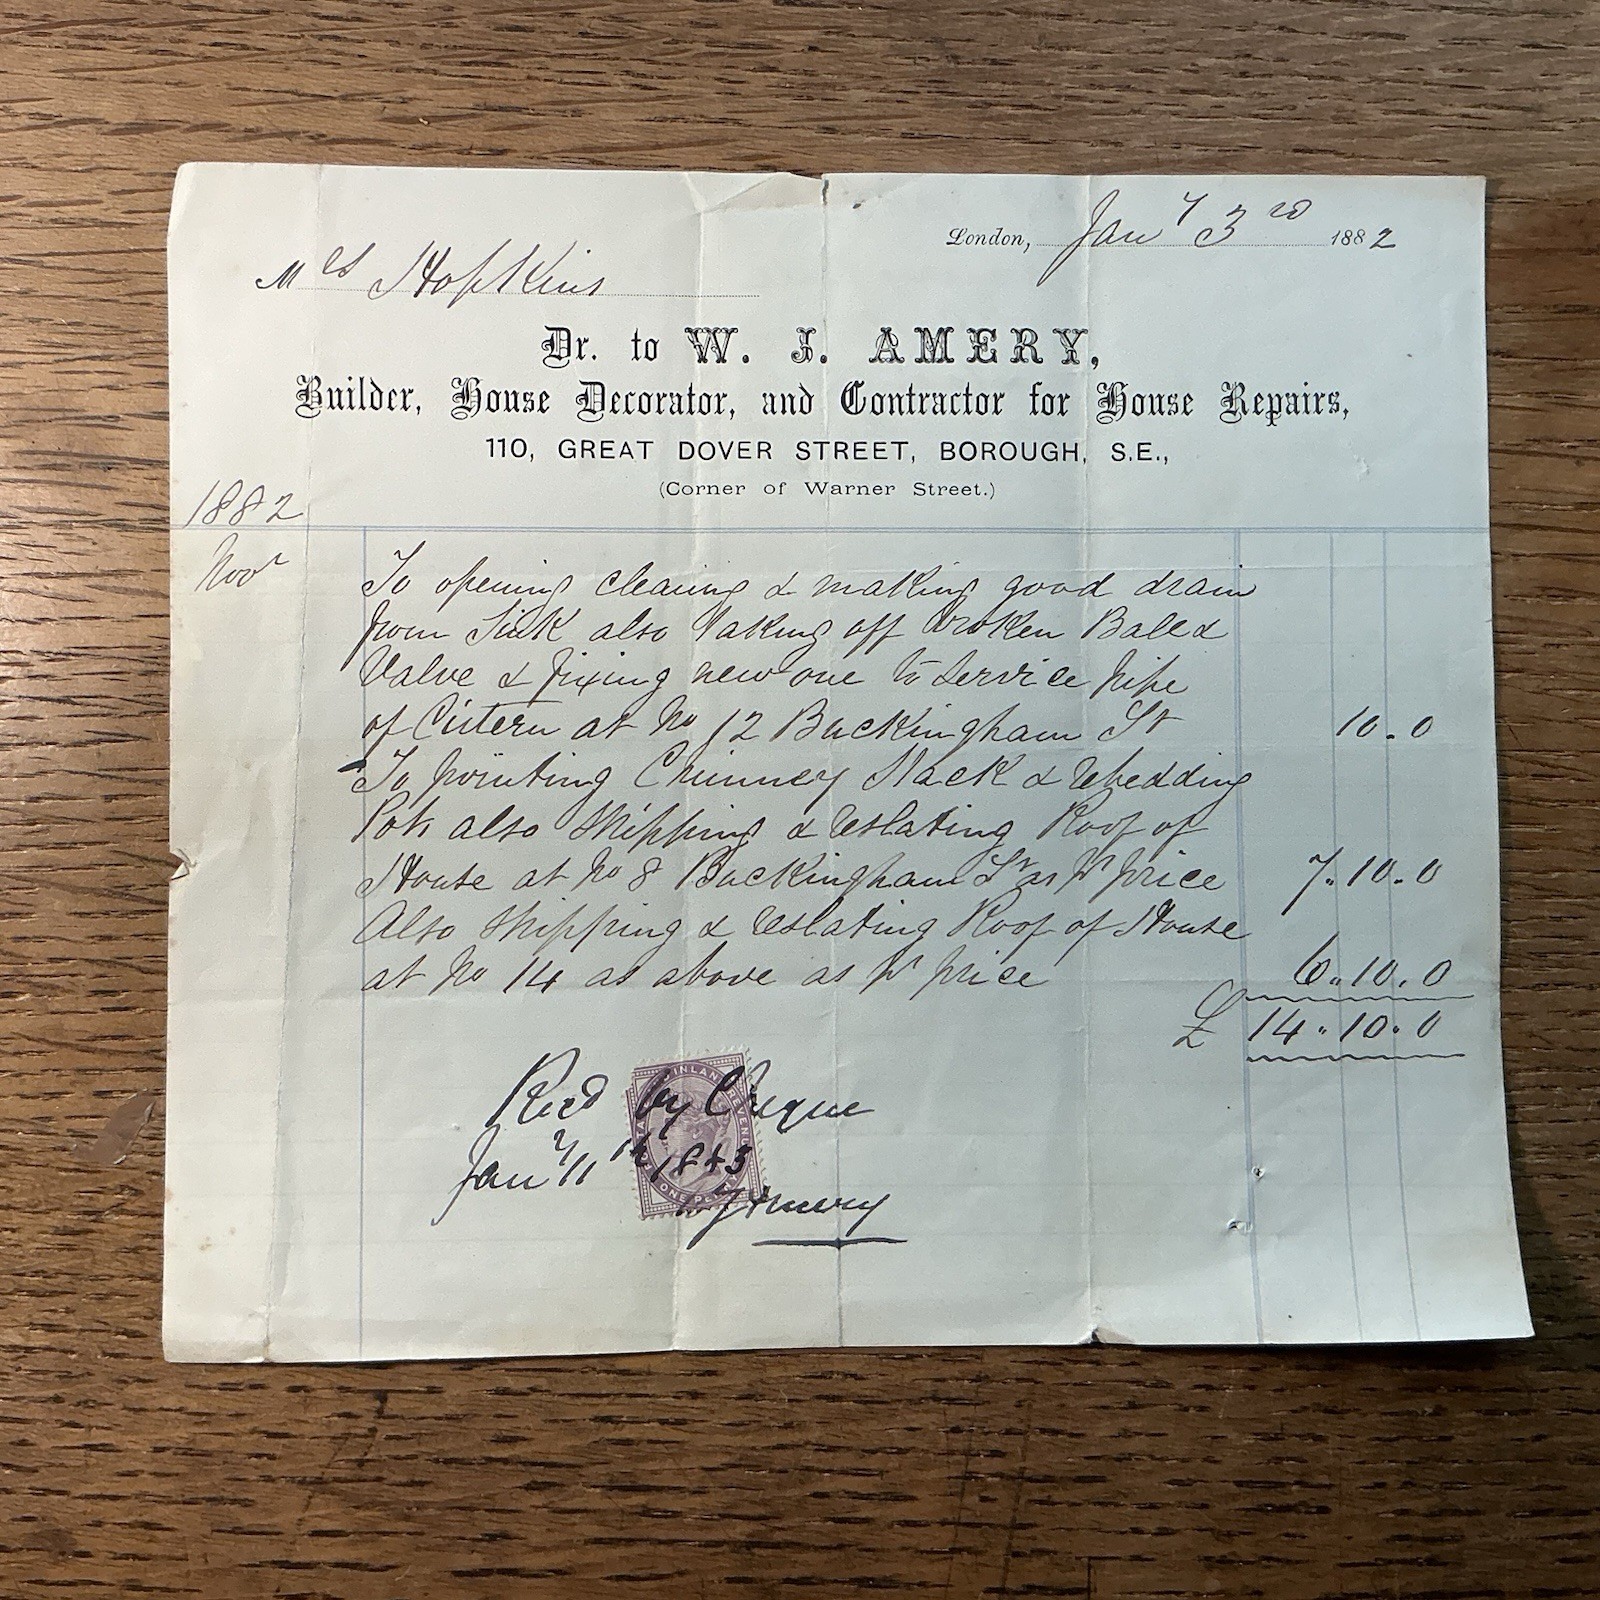 London, Jany 3rd 1882
Mrs Hopkins
Dr. to W. J. AMERY,
Builder, House Decorator, and Contractor for House Repairs,
110, GREAT DOVER STREET, BOROUGH, S.E.,
(Corner of Warner Street.)
1882
Novr To opening clearing & making good drain
from Sink also taking off broken Ball &
Valve & fixing new one to Service pipe
of Cistern at No 12 Buckingham St 10.0
To pointing Chimney Stack & rebedding
Pots also stripping & reslating Roof of
House at No 8 Buckingham St as pr price 7.10.0
Also stripping & reslating Roof of House
at No 14 as above as pr price 6.10.0
£ 14.10.0
INLAND REVENUE
Recd by Cheque
Jany 11th 1883
ONE PENNY
Amery